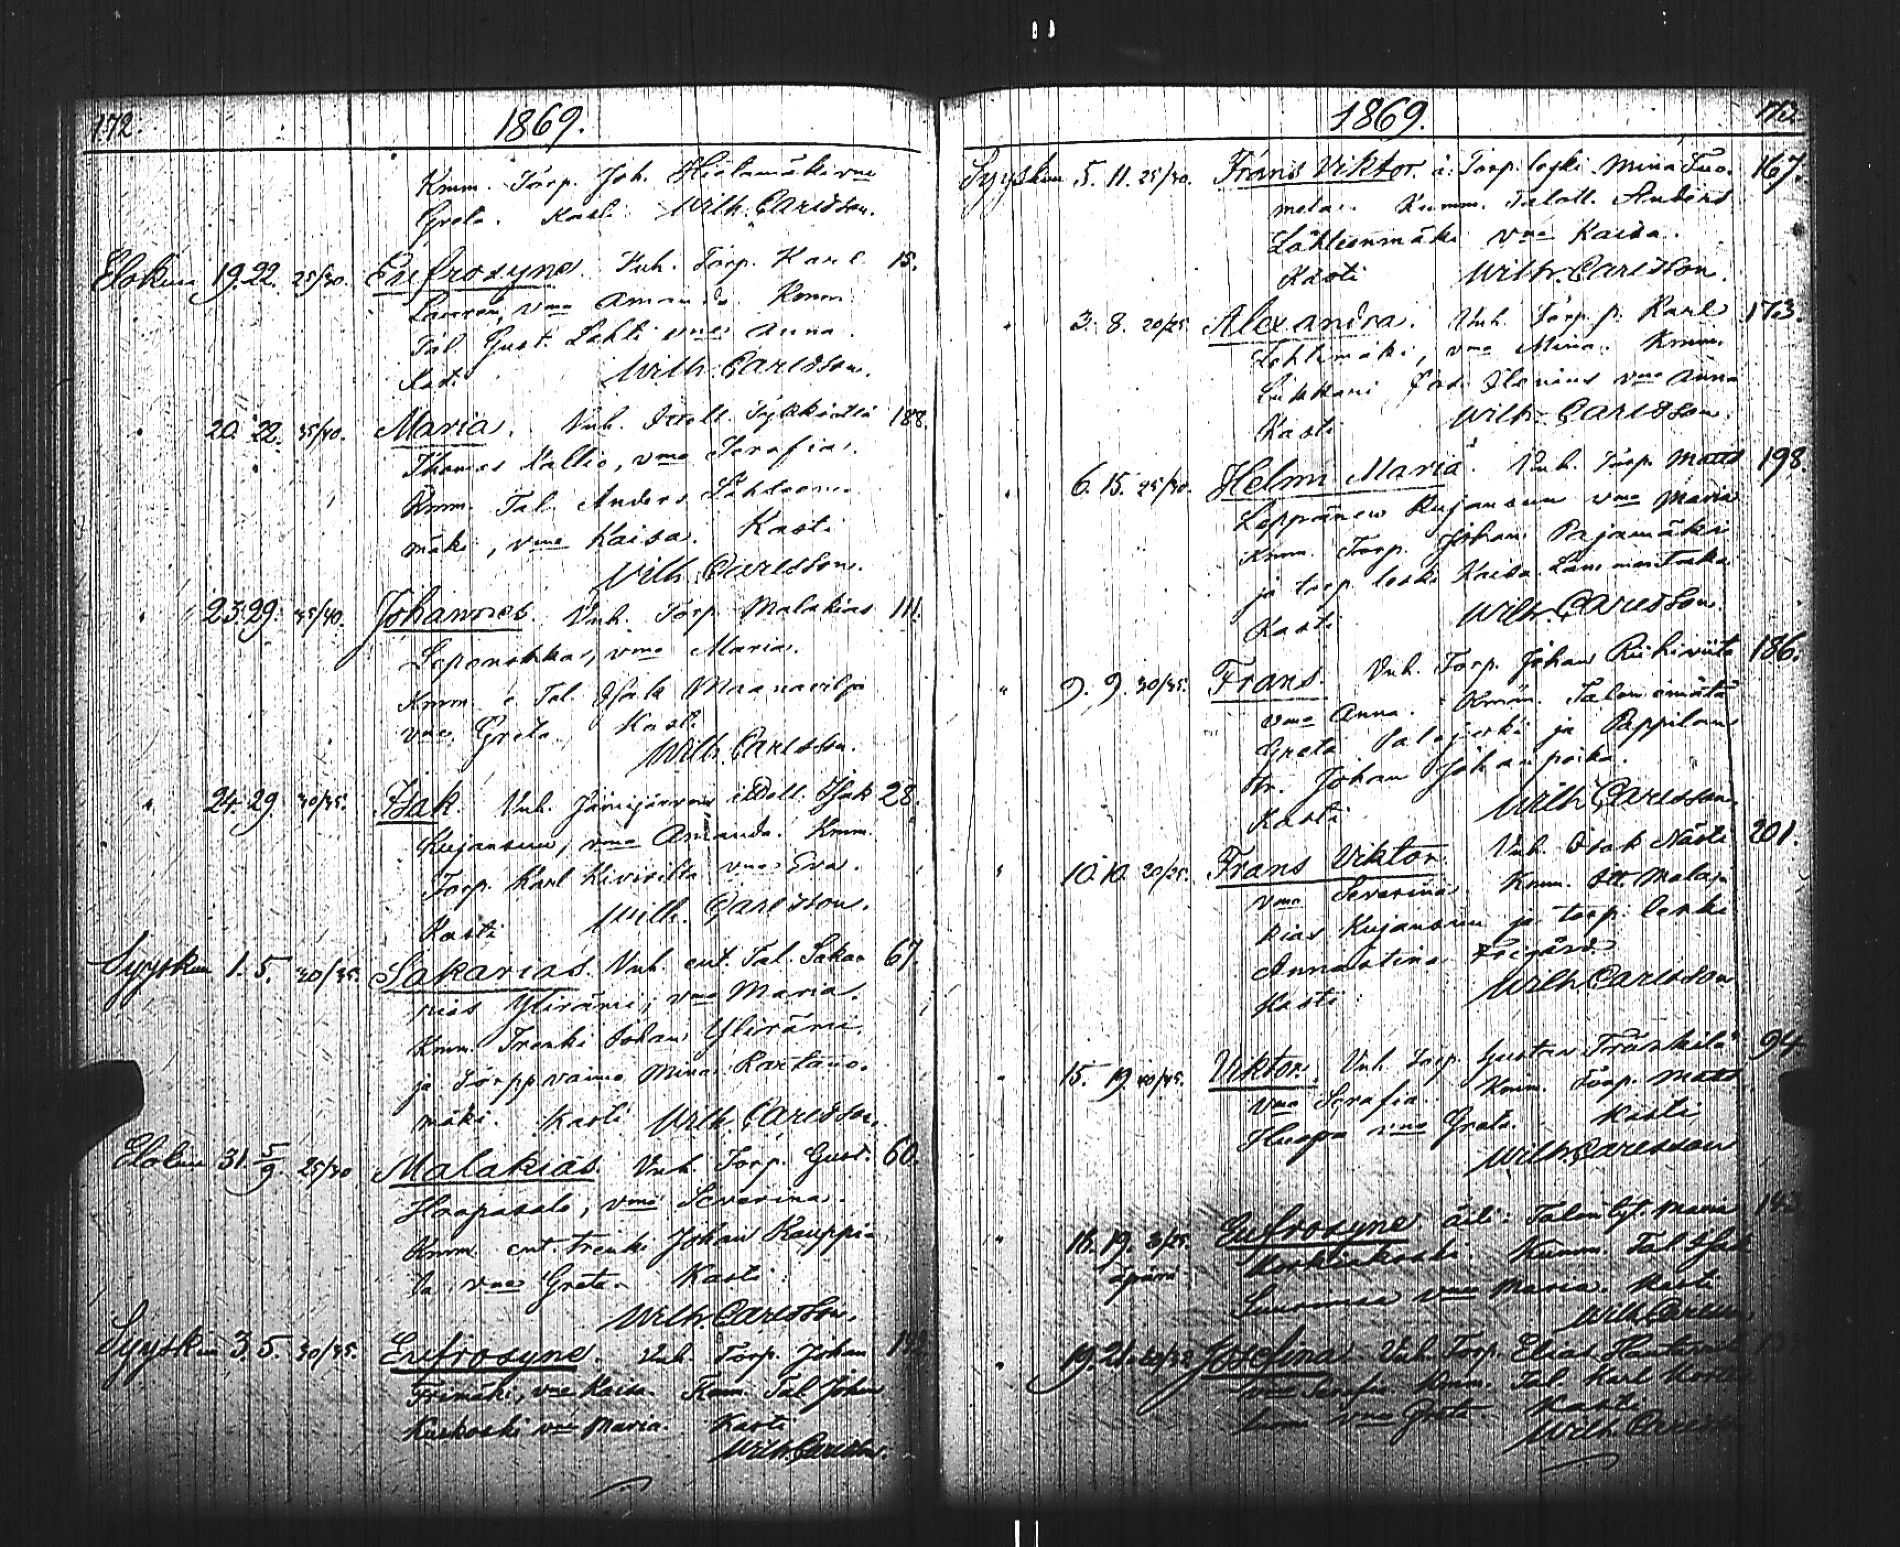 172.
1869.
Kmm. Torp. Joh. Hietamäki vmo
Greta. Kasti Wilh. Carlsson.
Elokuu 19. 22. 25/30. Eufrosyne. Vnh. Torp. Karl 15.
vmo Amanda. Kmm.
Tal. Gust. Lahti vmo Anna.
Kasti Wilh. Carlsson.
" 20. 22. 35/40. Maria. Vnh. Itsell. 188.
Thomas Kallio, vmo Serafia.
Kmm. Tal. Anders Lähteen-
mäki, vmo Kaisa. Kasti
Wilh. Carlsson.
" 23. 29. 35/40. Johannes. Vnh. Torp. Malakias 111.
vmo Maria.
Kmm. Tal. Isak
vmo Greta. Kasti
Wilh. Carlsson.
" 24. 29. 30/35. Isak. Vnh. Jämijärven itsell. Isak 28.
Kujansuu, vmo Amanda. Kmm.
Torp. Karl Kivisilta vmo Eva.
Kasti Wilh. Carlsson.
Syyskuu 1. 5. 30/35. Sakarias. Vnh. ent. Tal. Saka- 67.
rias Ylirämi, vmo Maria.
Kmm. Trenki Johan Ylirämi
ja Torpp. vaimo Mina Kartano-
mäki. Kasti Wilh. Carlsson.
Elokuu 31. 5/9. 25/30 Malakias. Vnh. Torp. Gust. 60.
Haapasalo, vmo Severina.
Kmm. ent. trenki Johan Kauppi-
la vmo Greta. Kasti
Wilh. Carlsson.
Syyskuu 3. 5. 30/35. Eufrosyne. Vnh. Torp. Johan
vmo Kaisa. Kmm. Tal. Johan
Kuskoski vmo Maria. Kasti
Wilh. Carlsson.
1869.
173.
Syyskuu 5. 11. 25/30. Frans Viktor. ä. Torp. leski Mina Tuo- 167.
mela. Kumm. Taloll. Anders
Lähteenmäki vmo Kaisa.
Kasti Wilh. Carlsson.
" 3. 8. 20/25. Alexandra. Vnh. Torp. p. Karl 173.
Lehtimäki, vmo Mina. Kmm.
Lukkari vmo Anna
Kasti Wilh. Carlsson.
" 6. 15. 25/30. Helmi Maria. Vnh. Torp. Matts 198.
Leppänen Kujansuu vmo Maria
Kmm. Torp. Johan Pajamäki
ja torp. leski Kaisa
Kasti Wilh. Carlsson.
" 9. 9. 30/35. Frans. Vnh. Torp. Johan Riihiviita 186.
vmo Anna. Kmm. Talon emäntä
Greta Palojärvi ja Pappilan
tr. Johan Johanpoika.
Kasti Wilh. Carlsson.
" 10. 10. 20/25. Frans Viktor. Vnh. Isak 201.
vmo Severina. Kmm. itt. Mala-
kias Kujansuu ja torp. leski
Annastina
Kasti Wilh. Carlsson
" 15. 19. 40/45. Viktor. Vnh. Torp. Gustav Fränkilä 94.
vmo Serafia. Kmm. Torp. Matts
vmo Greta. Kasti
Wilh. Carlsson
" 18. 19. Eufrosyne äiti: Talon tyt. Maria
äpärä. Koskiskoski. Kumm. Tal. Isak
vmo Maria. Kasti
Wilh. Carlsson,
" 19. 21. Josefina Vnh. Torp. Elias
vmo Serafia. Kmm. Tal. Karl
vmo Greta. Kasti
Wilh. Carlsson